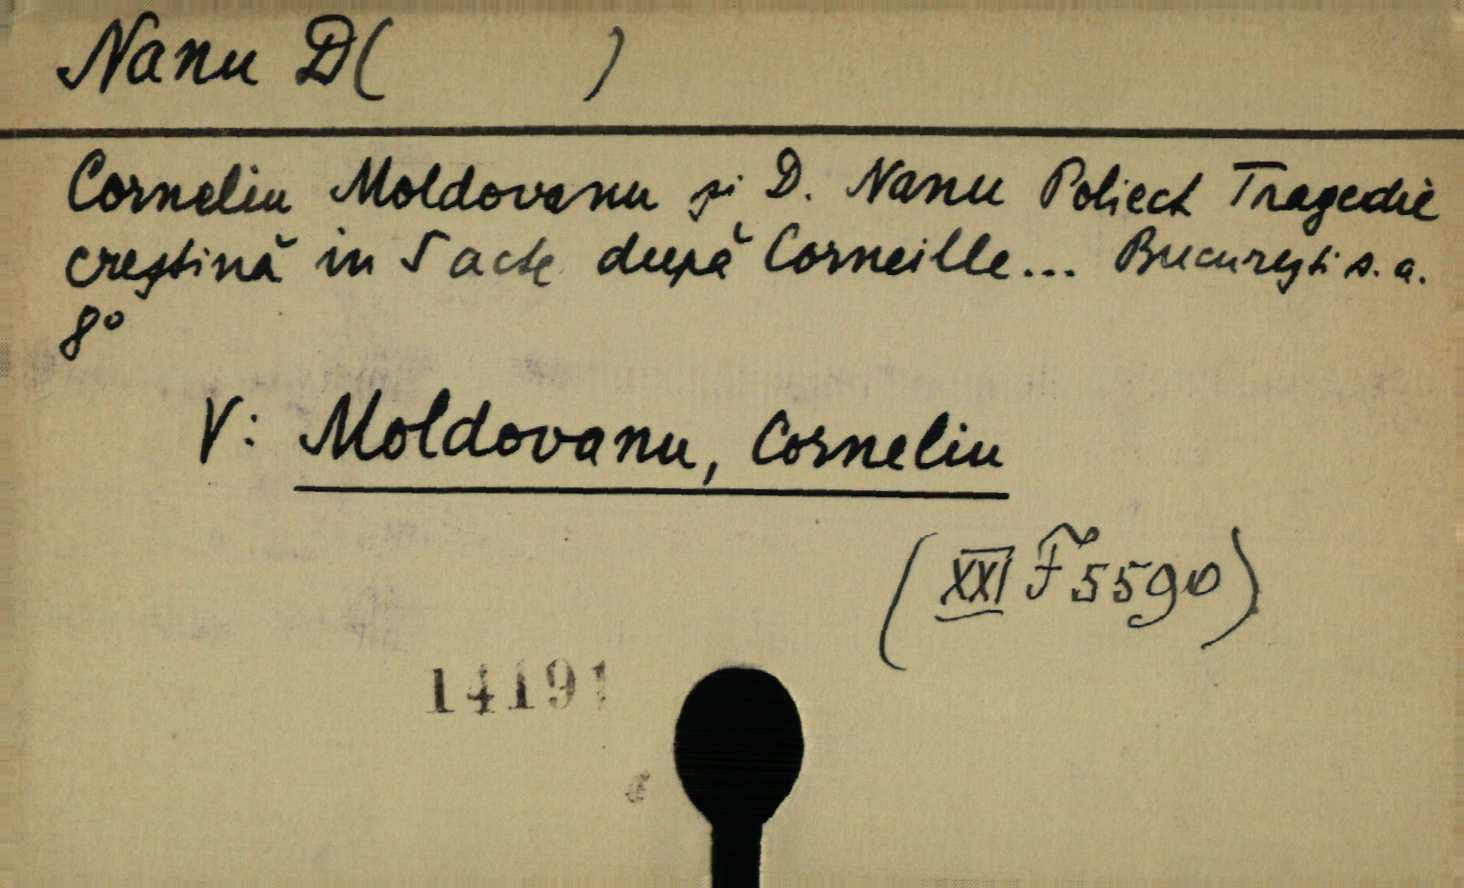 Nanu D( )
Corneliu Moldovanu și D. Nanu Poliect Tragedie
creștină in 5 acte după Corneille... București s.a.
8º
V: Moldovanu, Corneliu
(XXI F 5590)
14191